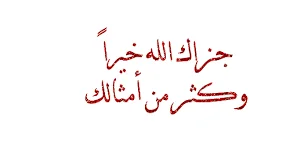 جزاك الله خيراً
وكثر من أمثالك